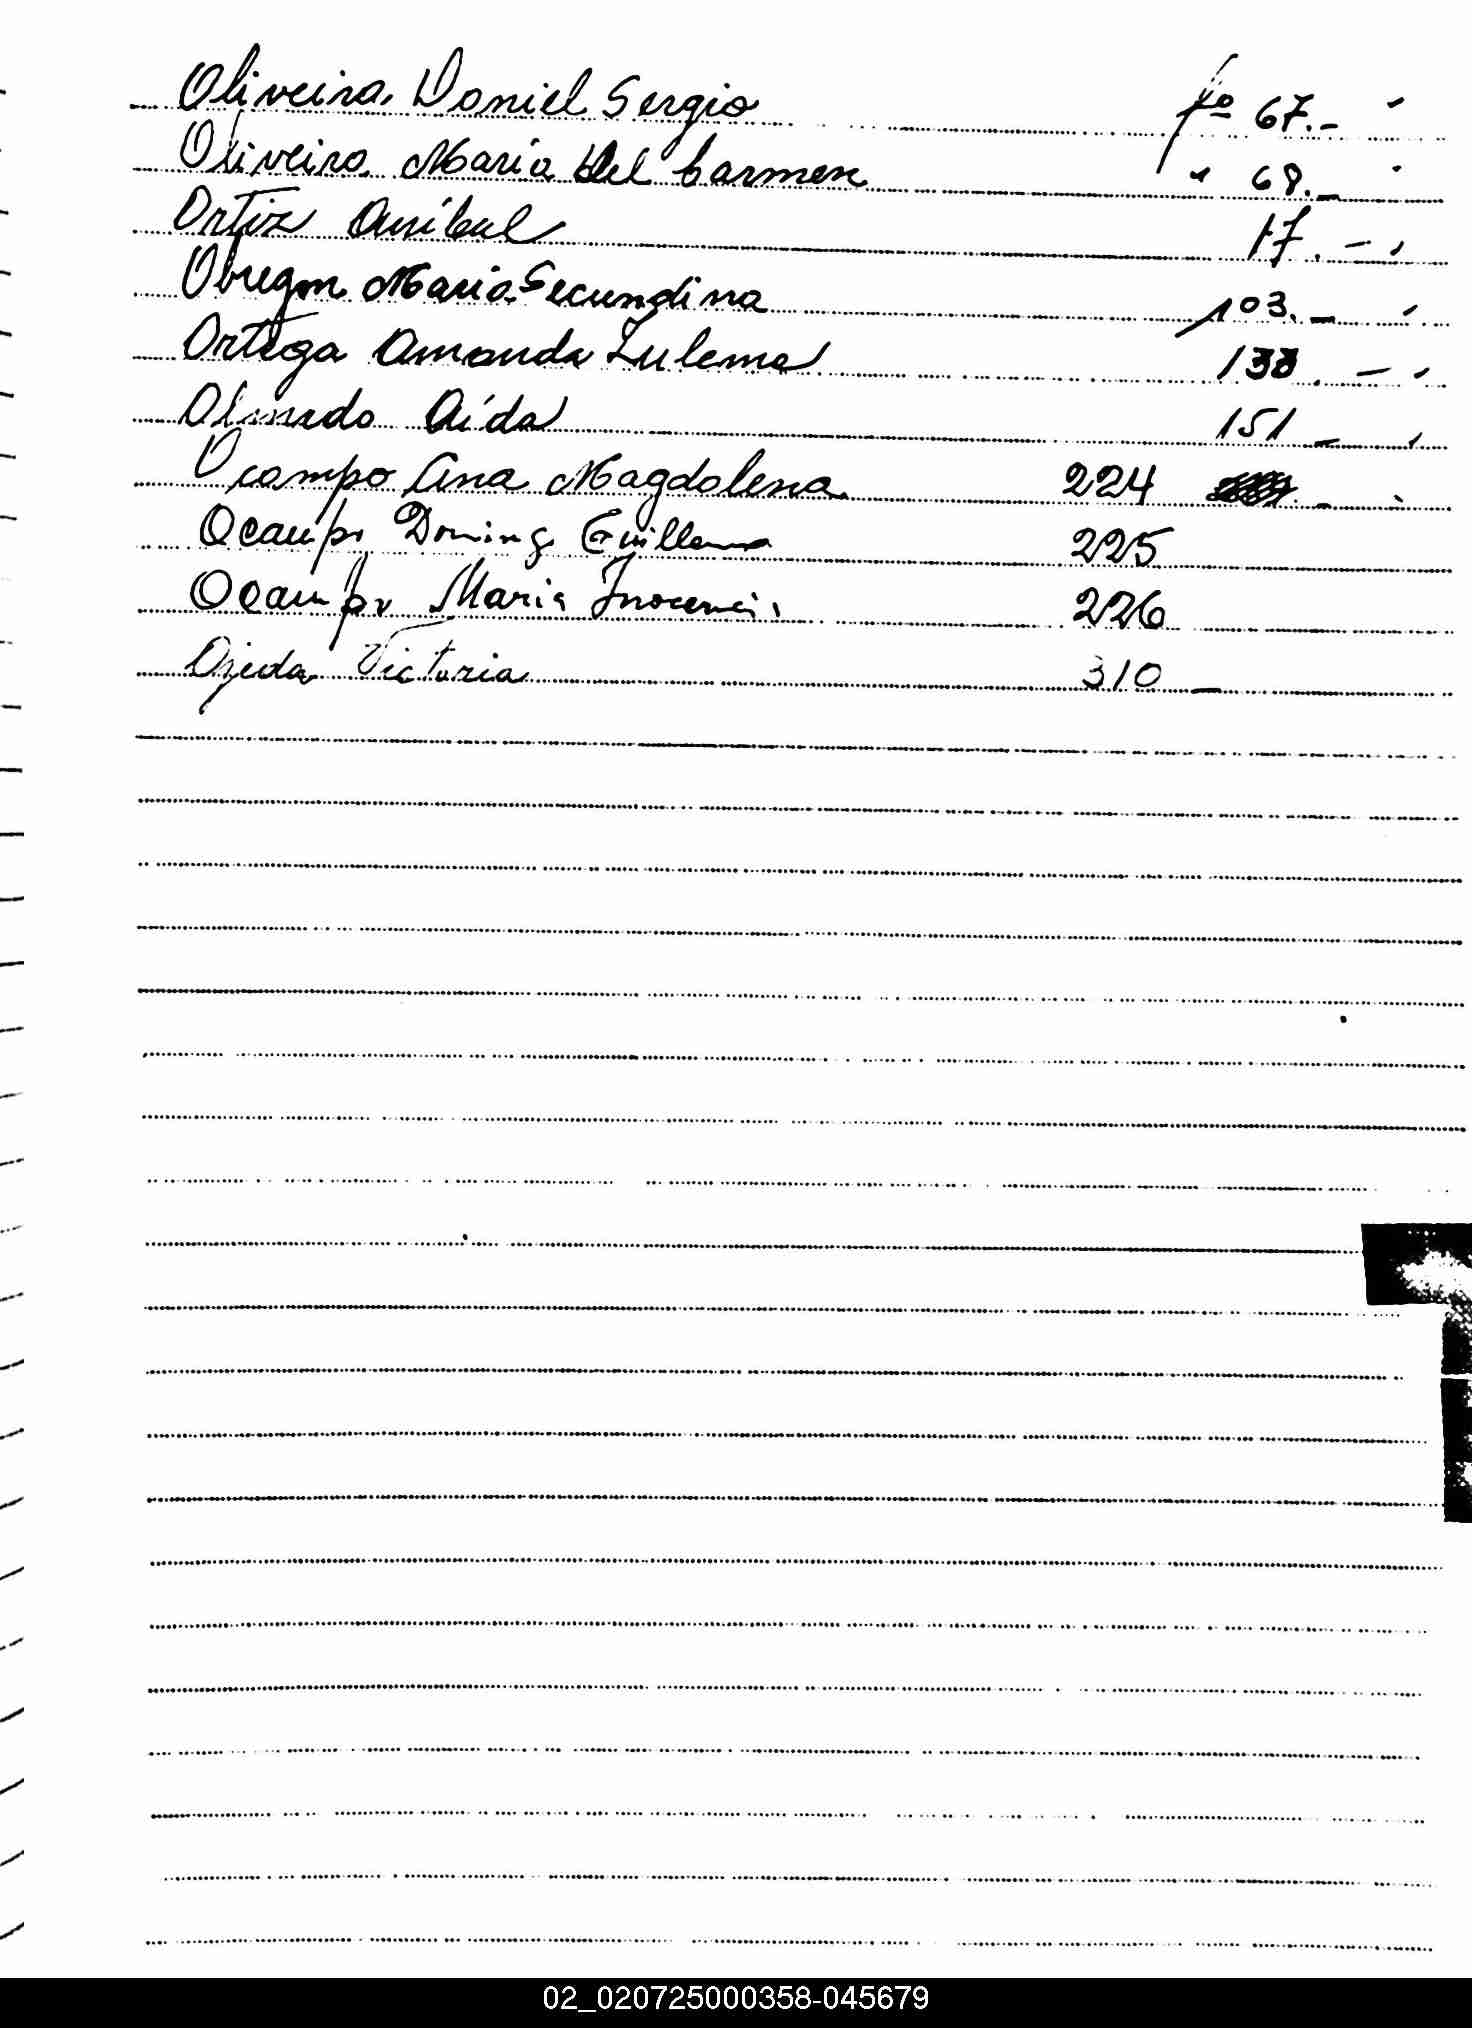 Oliveira, Daniel Sergio fº 67.-
Oliveira María del Carmen " 68.-
Ortiz Aníbal 17.-
Obregon María Secundina 103.-
Ortega Amanda Zulema 138.-
Olmedo Aída 151-
Ocampo Ana Magdalena 224
Ocampo Doming Guillermo 225
Ocampo Maria Inocencia 226
Ojeda Victoria 310-
02_020725000358-045679